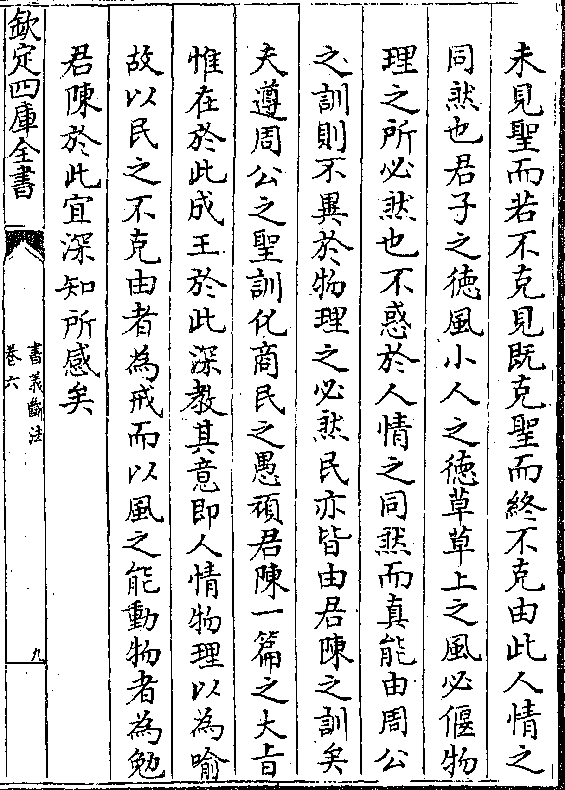 未見聖而若不克見既克聖而終不克由此人情之
同然也君子之徳風小人之徳草草上之風必偃物
理之所必然也不惑於人情之同然而真能由周公
之訓則不異於物理之必然民亦皆由君陳之訓矣
夫遵周公之聖訓化商民之愚頑君陳一篇之大㫖
惟在於此成王於此深教其意即人情物理以為喻
故以民之不克由者為戒而以風之能動物者為勉
君陳於此宜深知所感矣
欽定四庫全書
書義斷法
卷六
九